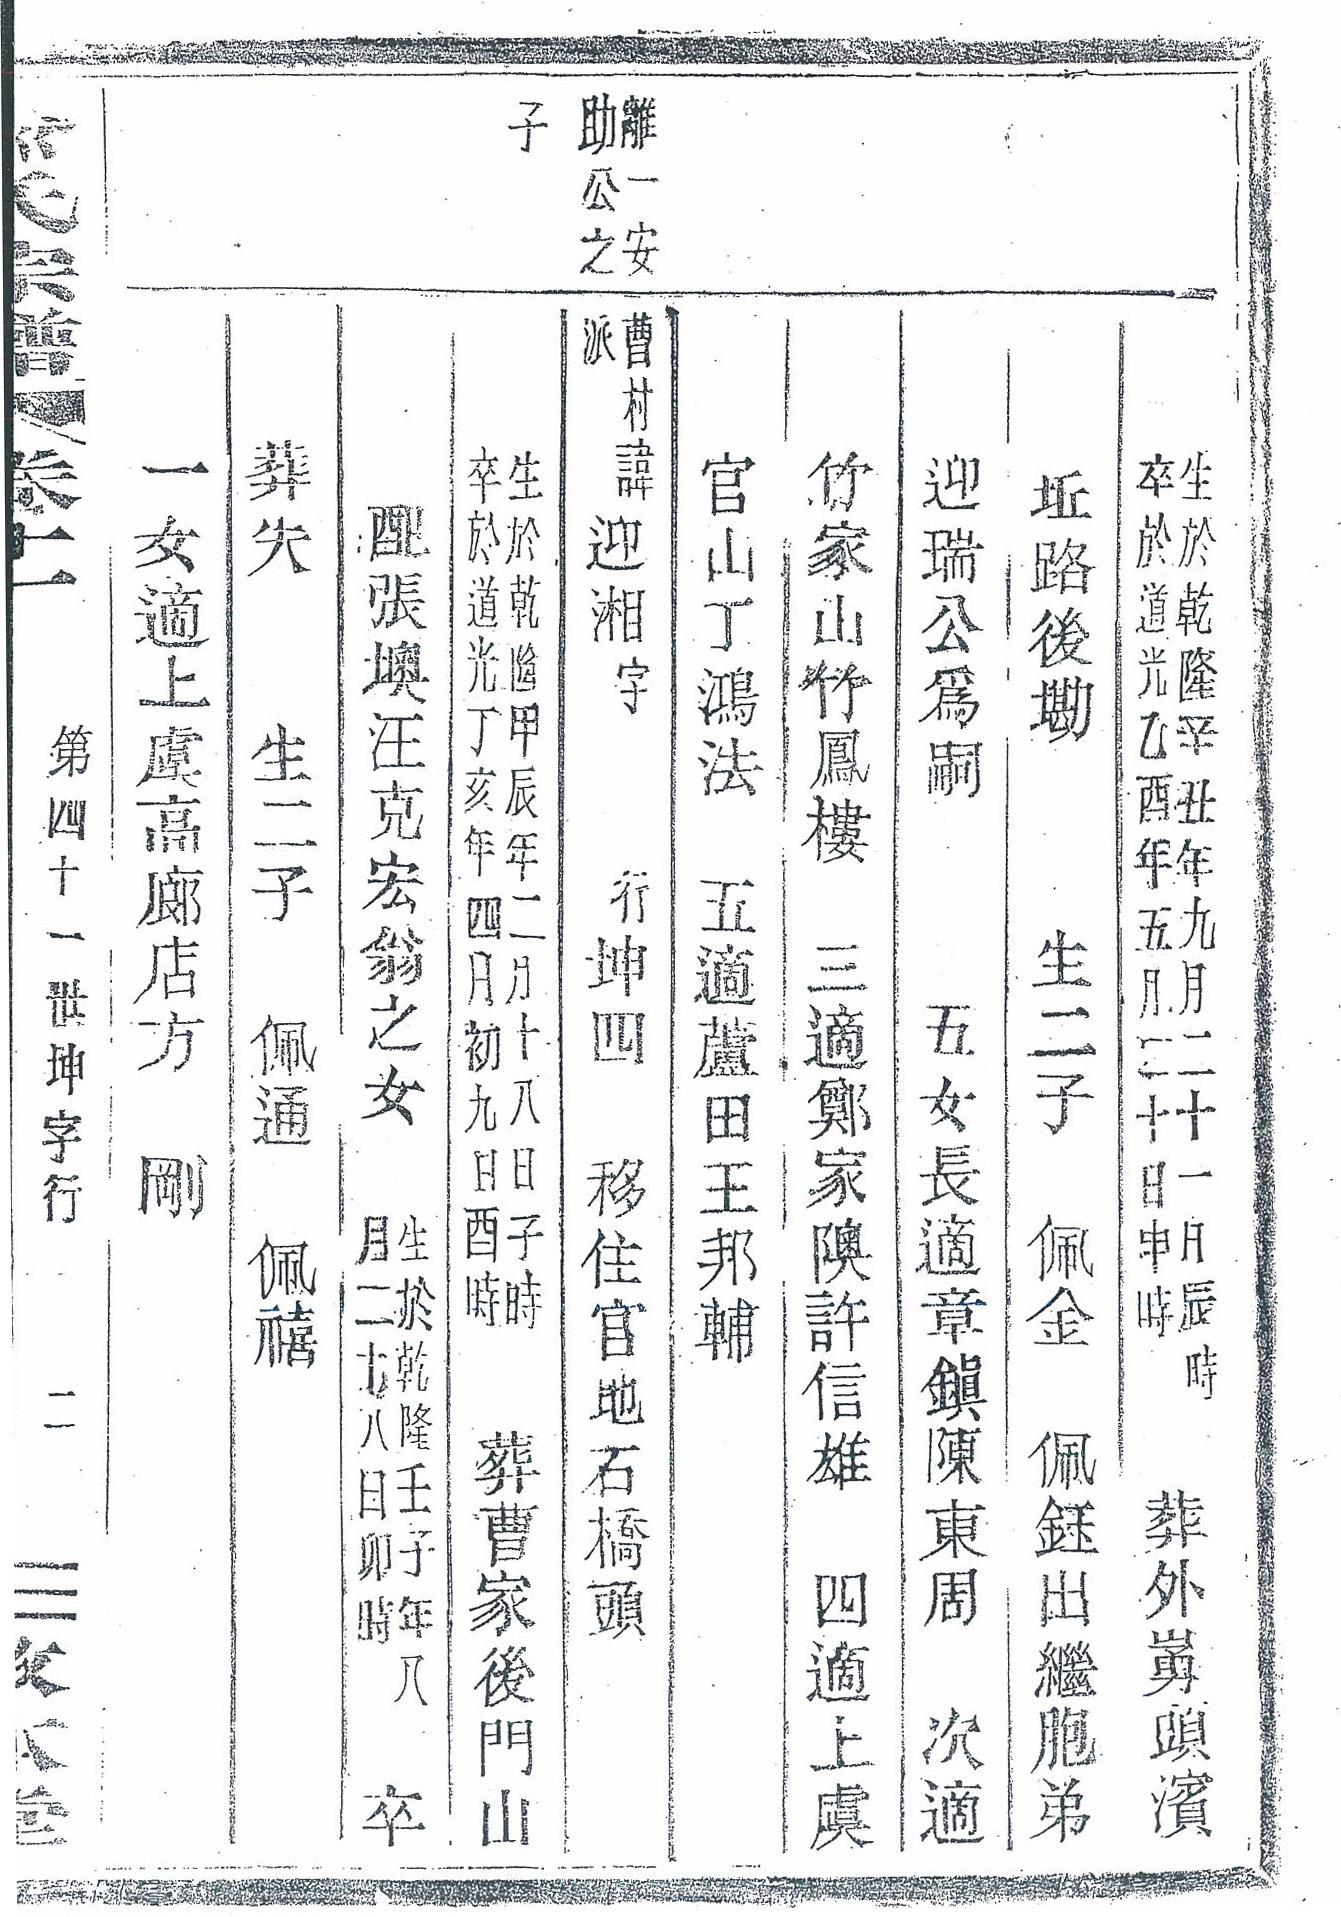 生於乾隆辛丑年九月二十一月辰時
卒於道光乙酉年五月二十日申時
葬外嵴頭濱
坵路後墈 生二子 佩金 佩鈺出繼胞弟
迎瑞公爲嗣 五女長適章鎭陳東周 次適
竹家山竹鳳樓 三適鄭家隩許信雄 四適上虞
官山丁鴻法 五適蘆田王邦輔
離一安
助公之
子
曹村諱
派
迎湘字 行坤四 移住官地石橋頭
生於乾隆甲辰年二月十八日子時
卒於道光丁亥年四月初九日酉時
葬曹家後門山
配張墺汪克宏翁之女
生於乾隆壬子年八
月二十八日卯時
卒
葬失 生二子 佩通 佩禧
一女適上虞高廊店方 剛
氏宗譜 卷十一 第四十一世坤字行 二 敦本堂